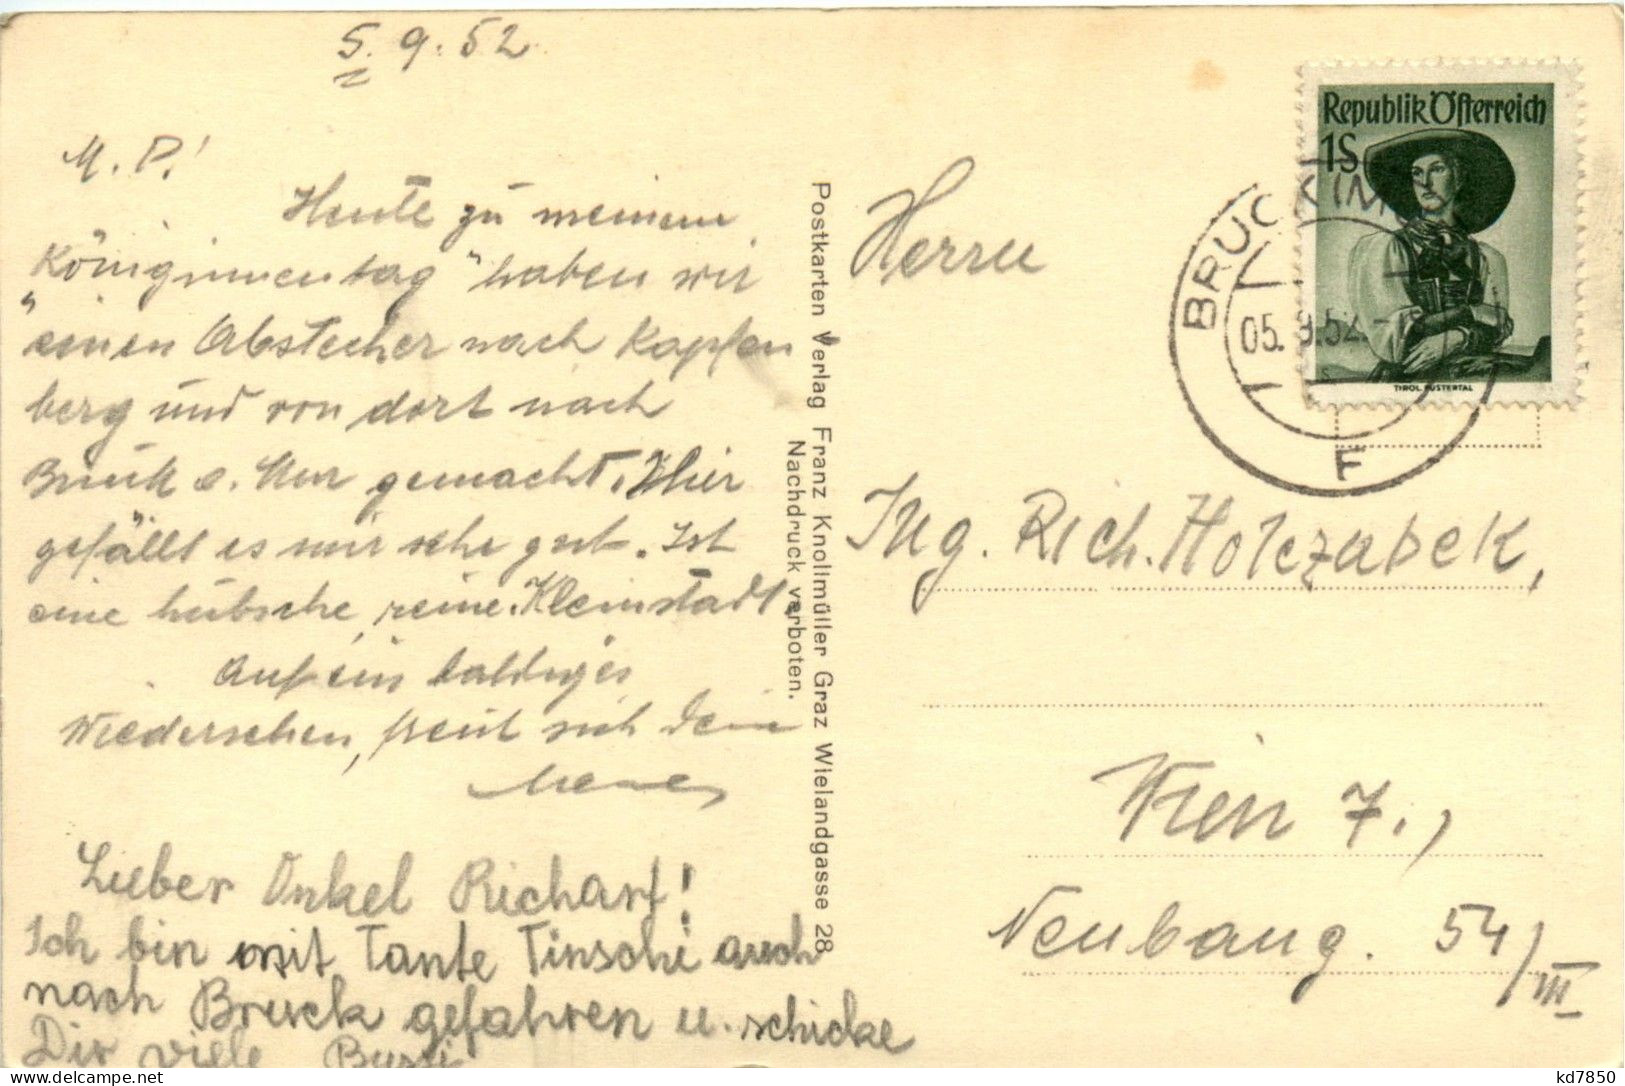 5. 9. 52
M. P.!
Heute zu meinem
"Königinnentag" haben wir
einen Abstecher nach Kapfen
berg und von dort nach
Bruck a. Mur gemacht. Hier
gefällt es mir sehr gut. Ist
eine hübsche, reine Kleinstadt.
Auf ein baldiges
Wiedersehen, freut sich Deine
Lieber Onkel Richard!
Ich bin mit Tante Tinschi auch
nach Bruck gefahren u. schicke
Dir viele Bussi
Postkarten Verlag Franz Knollmüller Graz Wielandgasse 28
Nachdruck verboten.
Republik Österreich
1S
TIROL PUSTERTAL
BRUCK
05. 9.52
F
Herrn
Ing. Rich. Holczabek,
Wien 7.,
Neubaug. 54/III
kd7850